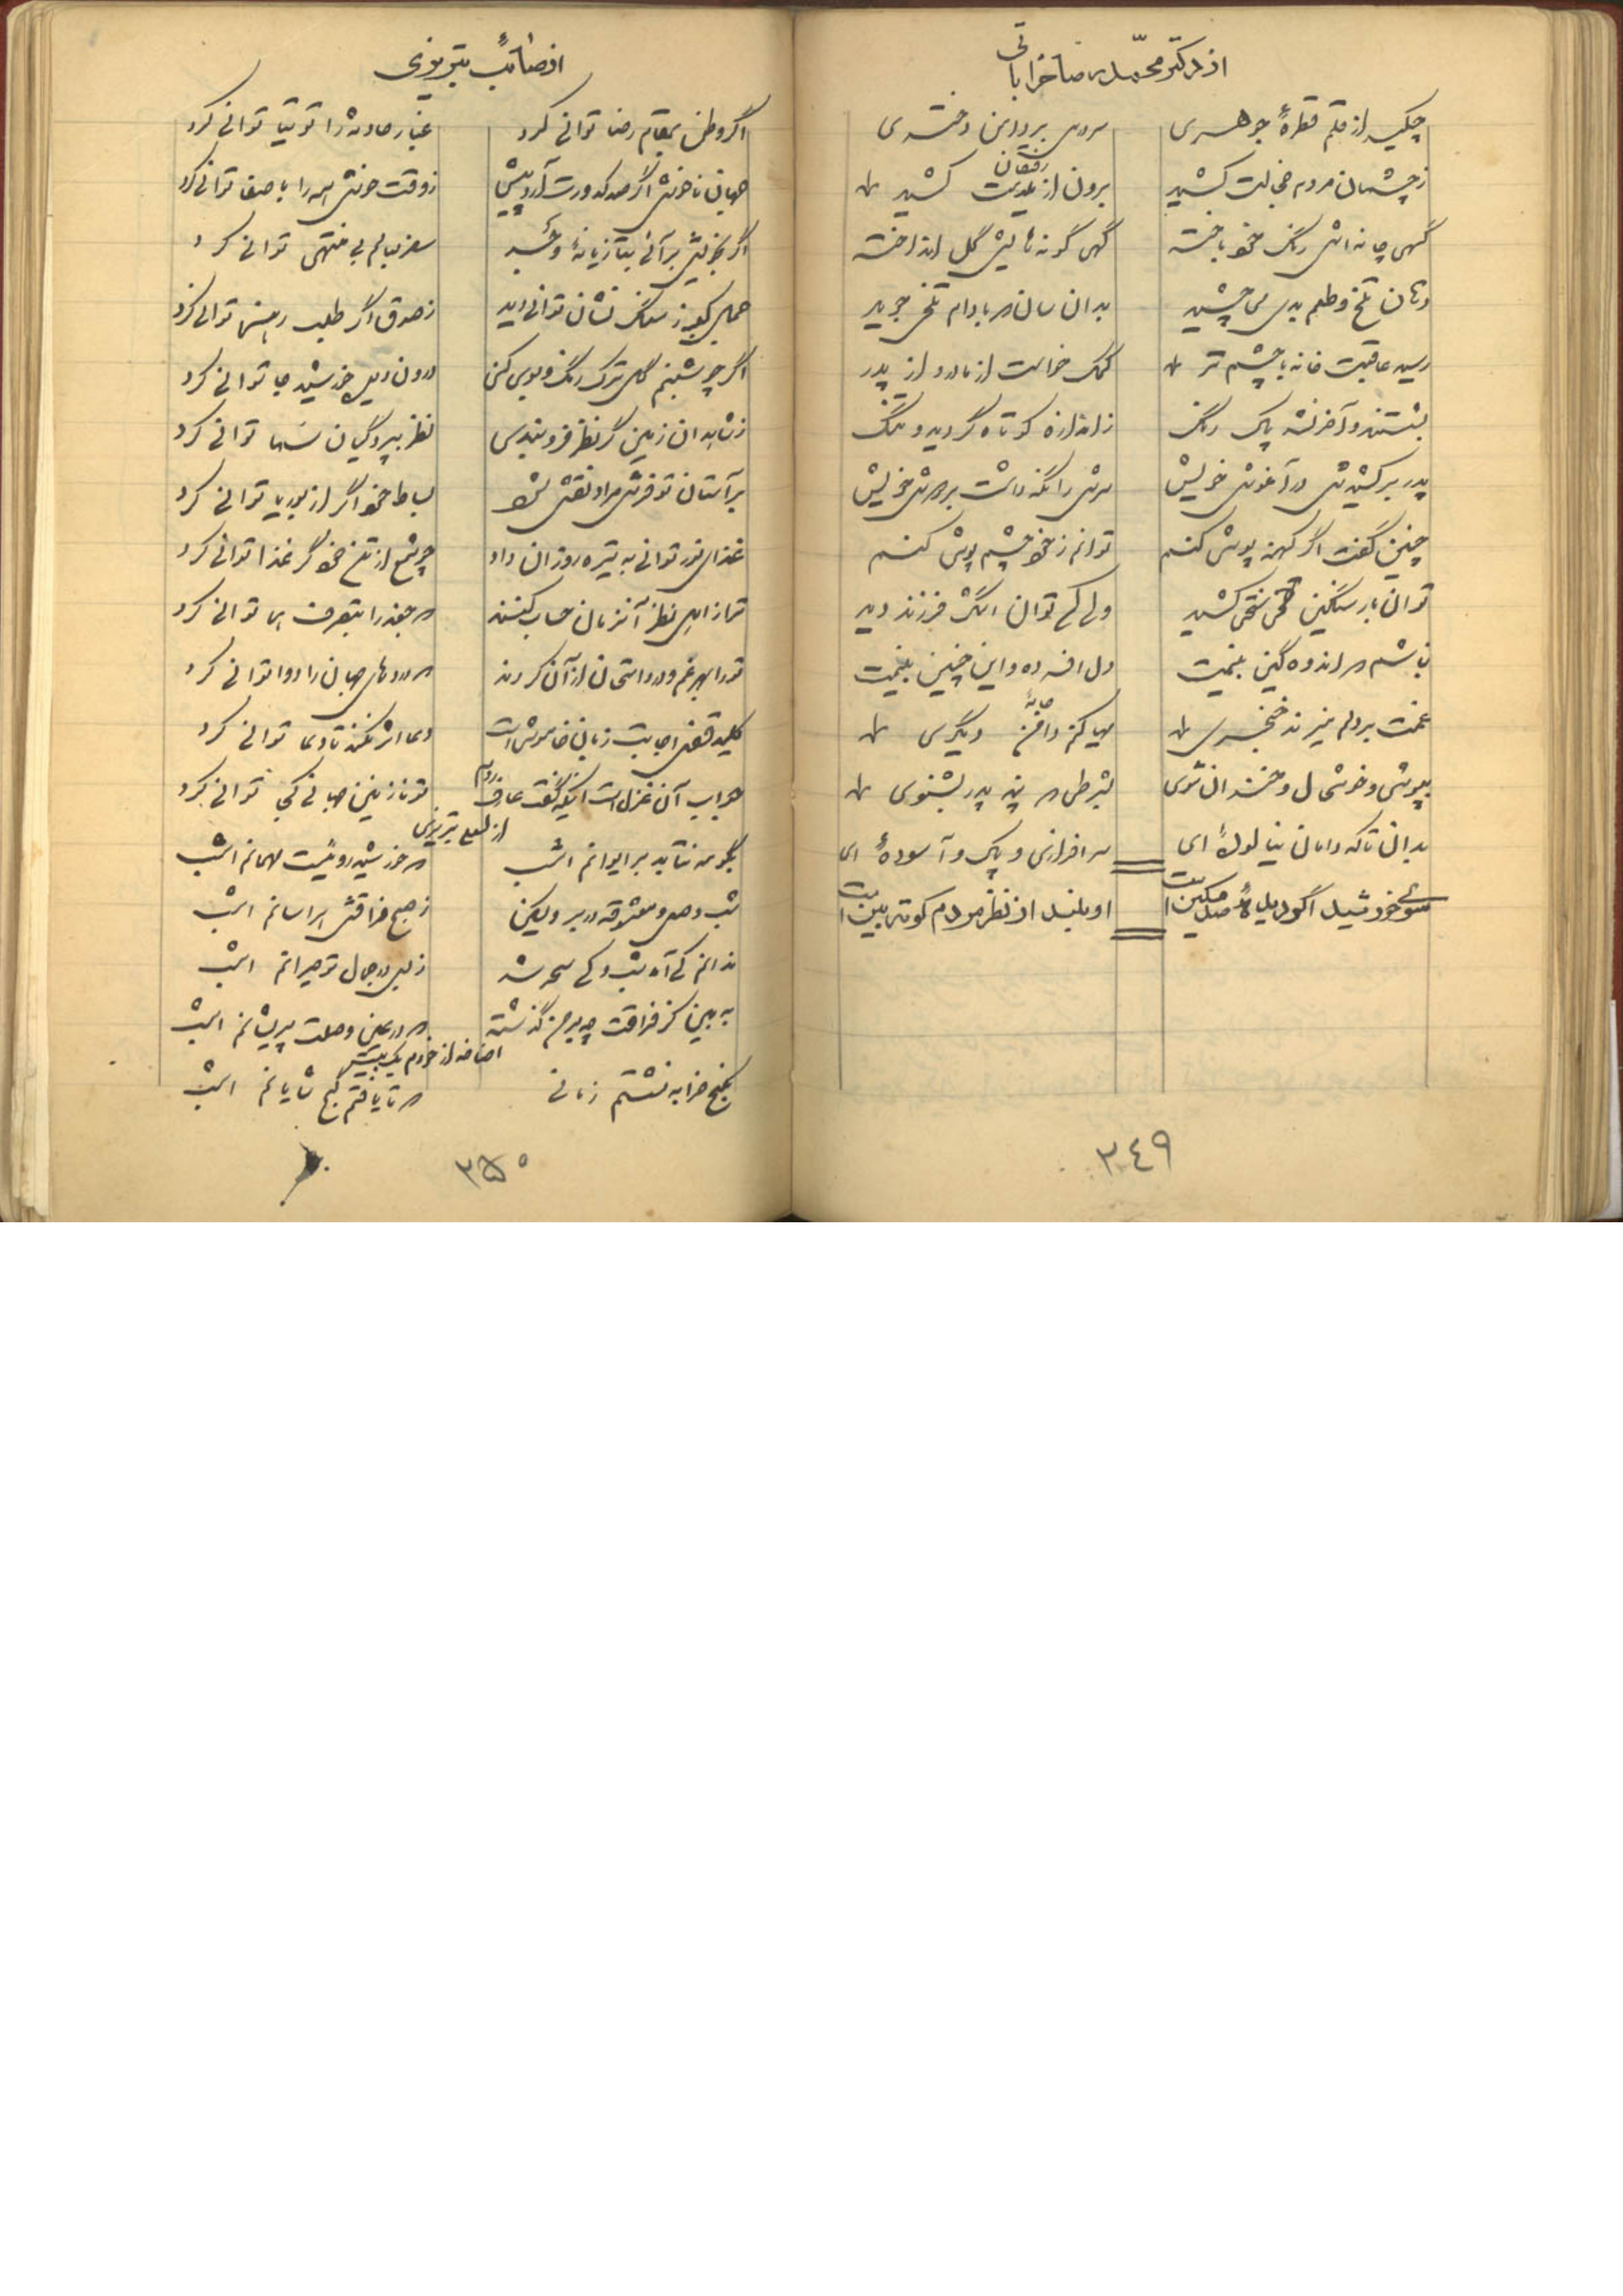 از دکتر محمد رضا خراباتی
چکید از قلم قطرهٔ جوهری
بروی پردین دختری
ز چشمان مردم خجالت کشید
برون از رفیقان کشید
گهی چانه اش رنگ خود باخته
گهی گونه هایش گل انداخته
دهان تلخ و طعم بدی می چشید
بدان سان که بادام تلخی جوید
رسید عاقبت خانه با چشم تر
کمک خواست از مادر و از پدر
بشستند و آخر نشد پاک رنگ
ز اندازه کوتاه گردید و تنگ
پدر برکشیدش در آغوش خویش
سرش را نگه داشت بر دوش خویش
چنین گفت اگر کهنه پوشی کنم
توانم ز خود چشم پوشی کنم
توان بار سنگین سختی کشید
ولی کی توان اشک فرزند دید
نباشم که اندوه گین بینمت
دل افسرده و این چنین بینمت
غمت بر دلم میزند خنجری
مهیا کنم جامهٔ دیگری
بپوشی و خوشحال و خندان شوی
بشرطی که پند پدر بشنوی
بدان تا که دامان نیالوده ای
سرافرازی و پاک و آسوده ای
سوی خورشید اگر دیدهٔ
او بلند از نظر مردم کوته بین است
۳۴۹
از صائب تبریزی
اگر وطن بمقام رضا توانی کرد
غبار حادثه را توتیا توانی کرد
جهان ناخوش اگر صد کدورت آرد پیش
ز وقت خوش همه را با صفا توانی کرد
اگر ز خویش برآئی بتازیانهٔ وجد
سفر بعالم بی منتهی توانی کرد
جمال کعبه ز سنگ نشان توانی دید
ز صدق اگر طلب رهنما توانی کرد
اگر چو شبنم گل ترک رنگ و بوی کنی
درون دیدهٔ خورشید جا توانی کرد
ز شاهدان زمین گر نظر فرو بندی
نظر بپردگیان سما توانی کرد
بر آستان تو فرش مراد نقش شود
بساط خود اگر از بوریا توانی کرد
غذای نور توانی به تیره روزان داد
چو شمع از تن خود گر غذا توانی کرد
ترا ز اهل نظر آنزمان حساب کنند
که جغد را بتصرف هما توانی کرد
تو را بهر غم و درد امتحان از آن کردند
که دردهای جهان را دوا توانی کرد
کلید قفل اجابت زبان خاموش است
دعا اثر نکند تا دعا توانی کرد
جواب آن غزل است اینکه گفت عارف روم
تو نازنین جهانی کجا توانی کرد
از لعلی تبریزی
بگو مه نتابد بر ایوانم امشب
که خورشید روئیست مهمانم امشب
شب وصل و معشوقه در بر ولیکن
ز صبح فراقش هراسانم امشب
ندانم کی آمد شب و کی سحر شد
ز بس در جمال تو حیرانم امشب
به بین کز فراقت چه بر من گذشته
که در عین وصلت پریشانم امشب
اضافه از خودم یک بیت
بکنج خرابه نشستم زمانی
که تا یافتم گنج شایانم امشب
۳۵۰